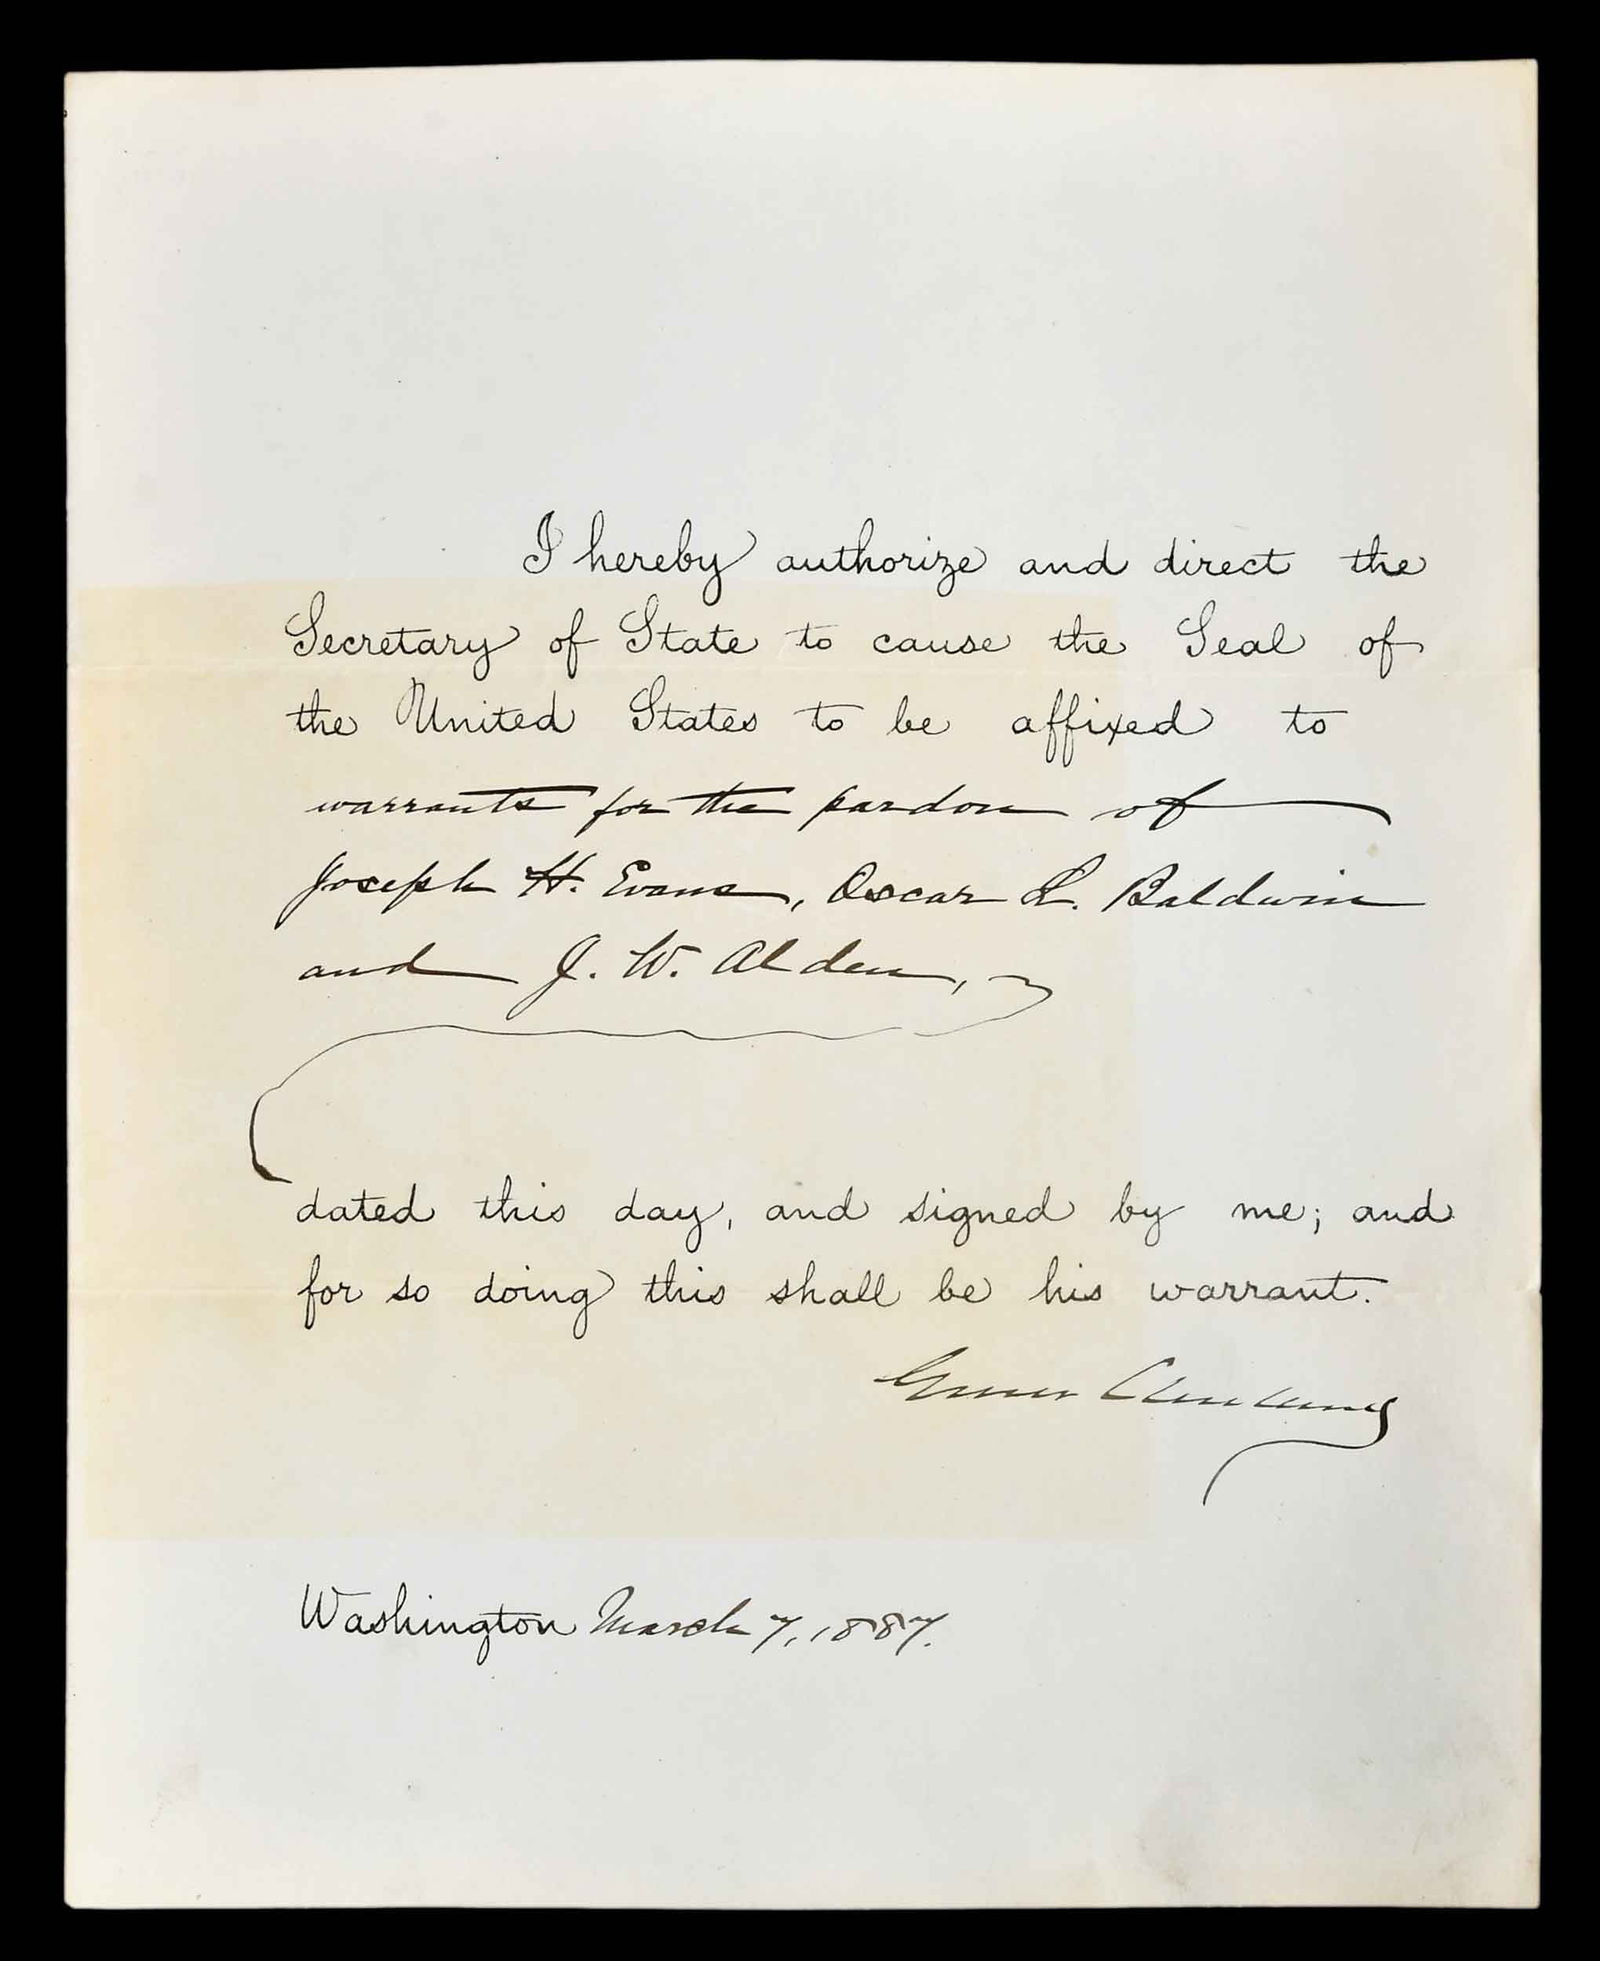 I hereby authorize and direct the
Secretary of State to cause the Seal of
the United States to be affixed to
warrants for the pardon of
Joseph H. Evans, Oscar L. Baldwin
and J. W. Alden,
dated this day, and signed by me; and
for so doing this shall be his warrant.
Grover Cleveland
Washington March 7, 1887.